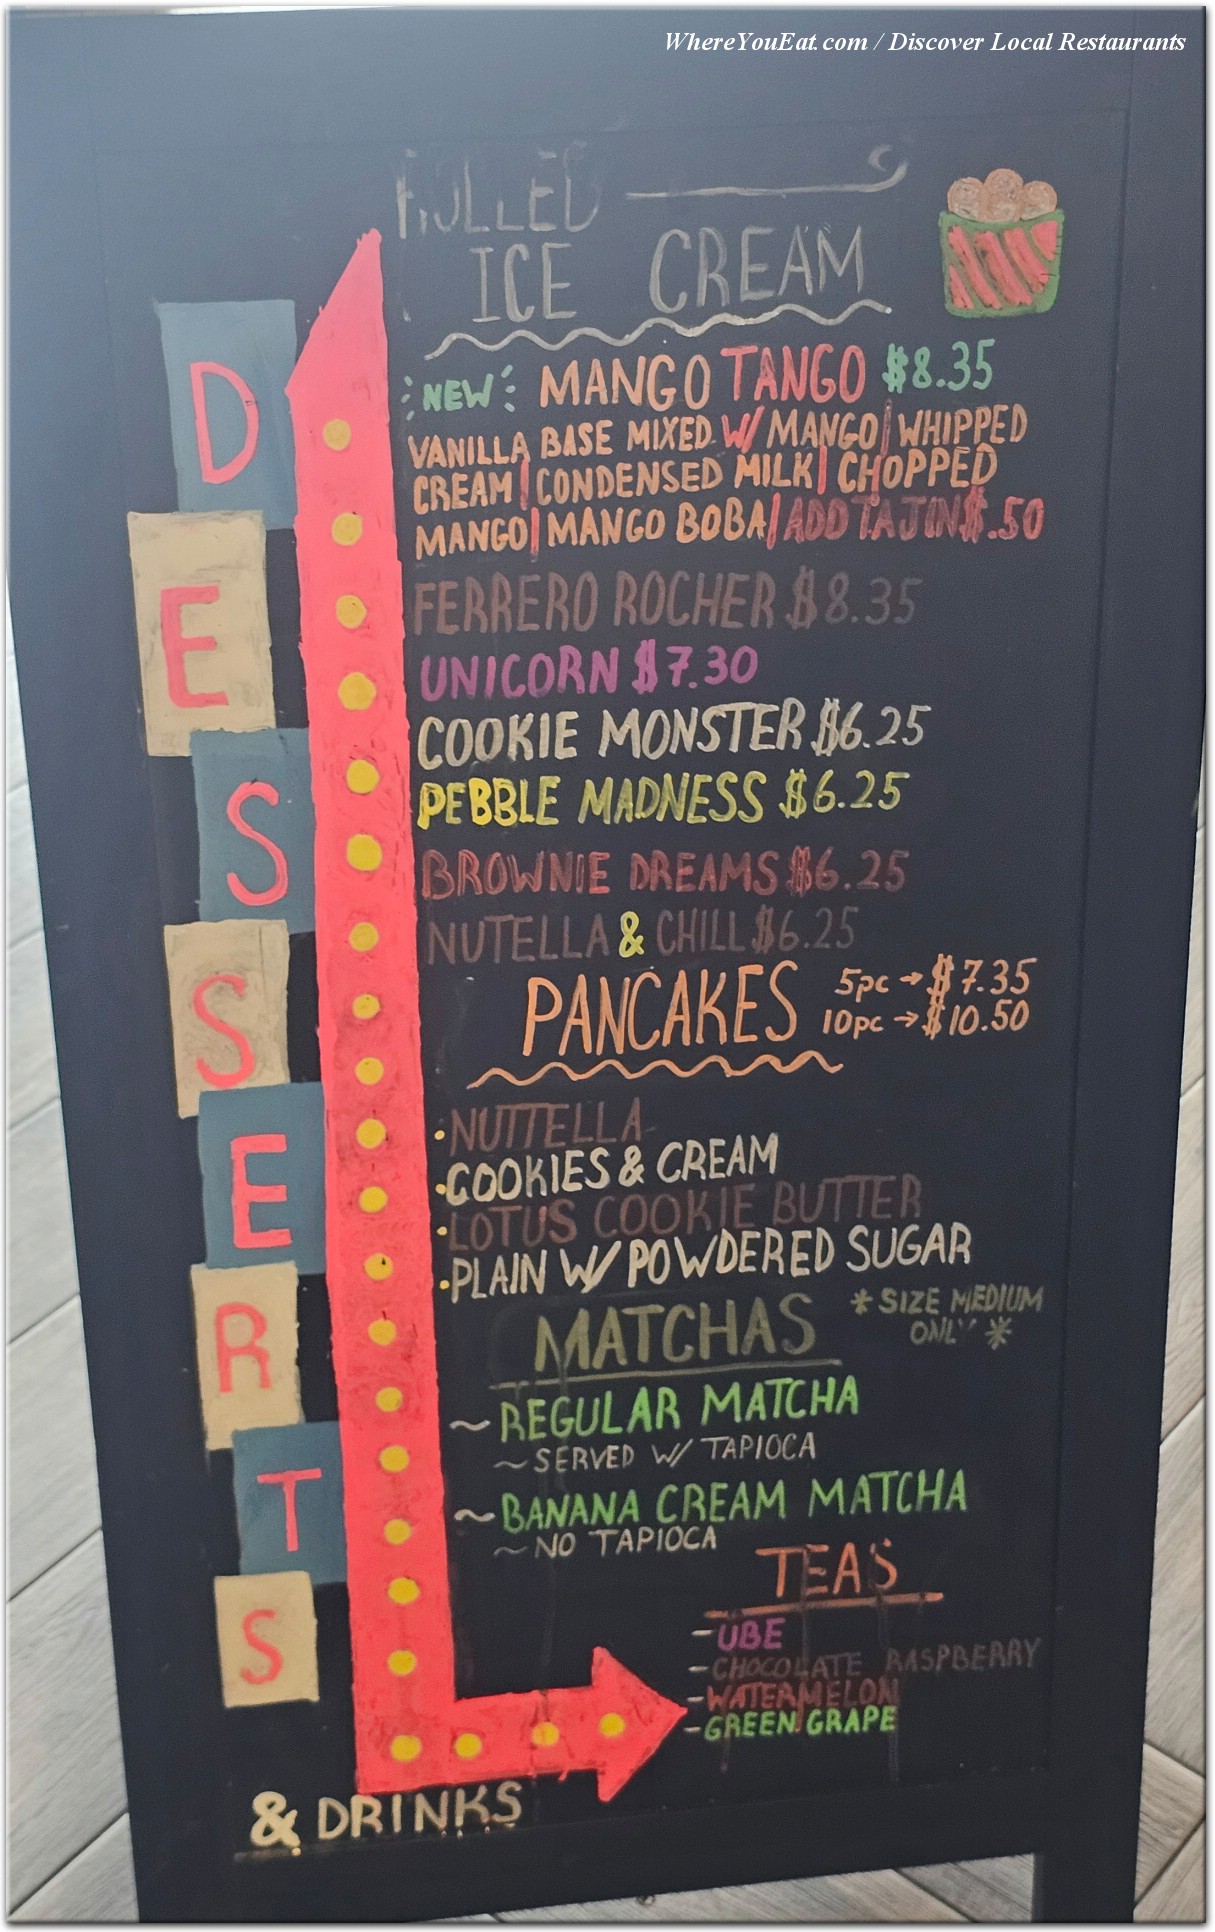 WhereYouEat.com / Discover Local Restaurants
ROLLED
ICE CREAM
NEW MANGO TANGO $8.35
VANILLA BASE MIXED W/ MANGO | WHIPPED
CREAM | CONDENSED MILK | CHOPPED
MANGO | MANGO BOBA | ADD TAJIN $.50
FERRERO ROCHER $8.35
UNICORN $7.30
COOKIE MONSTER $6.25
PEBBLE MADNESS $6.25
BROWNIE DREAMS $6.25
NUTELLA & CHILL $6.25
PANCAKES 5pc → $7.35
10pc → $10.50
• NUTTELLA
• COOKIES & CREAM
• LOTUS COOKIE BUTTER
• PLAIN W/ POWDERED SUGAR
MATCHAS * SIZE MEDIUM
ONLY *
~ REGULAR MATCHA
~ SERVED W/ TAPIOCA
~ BANANA CREAM MATCHA
~ NO TAPIOCA
TEAS
- UBE
- CHOCOLATE RASPBERRY
- WATERMELON
- GREEN GRAPE
DESSERTS
& DRINKS